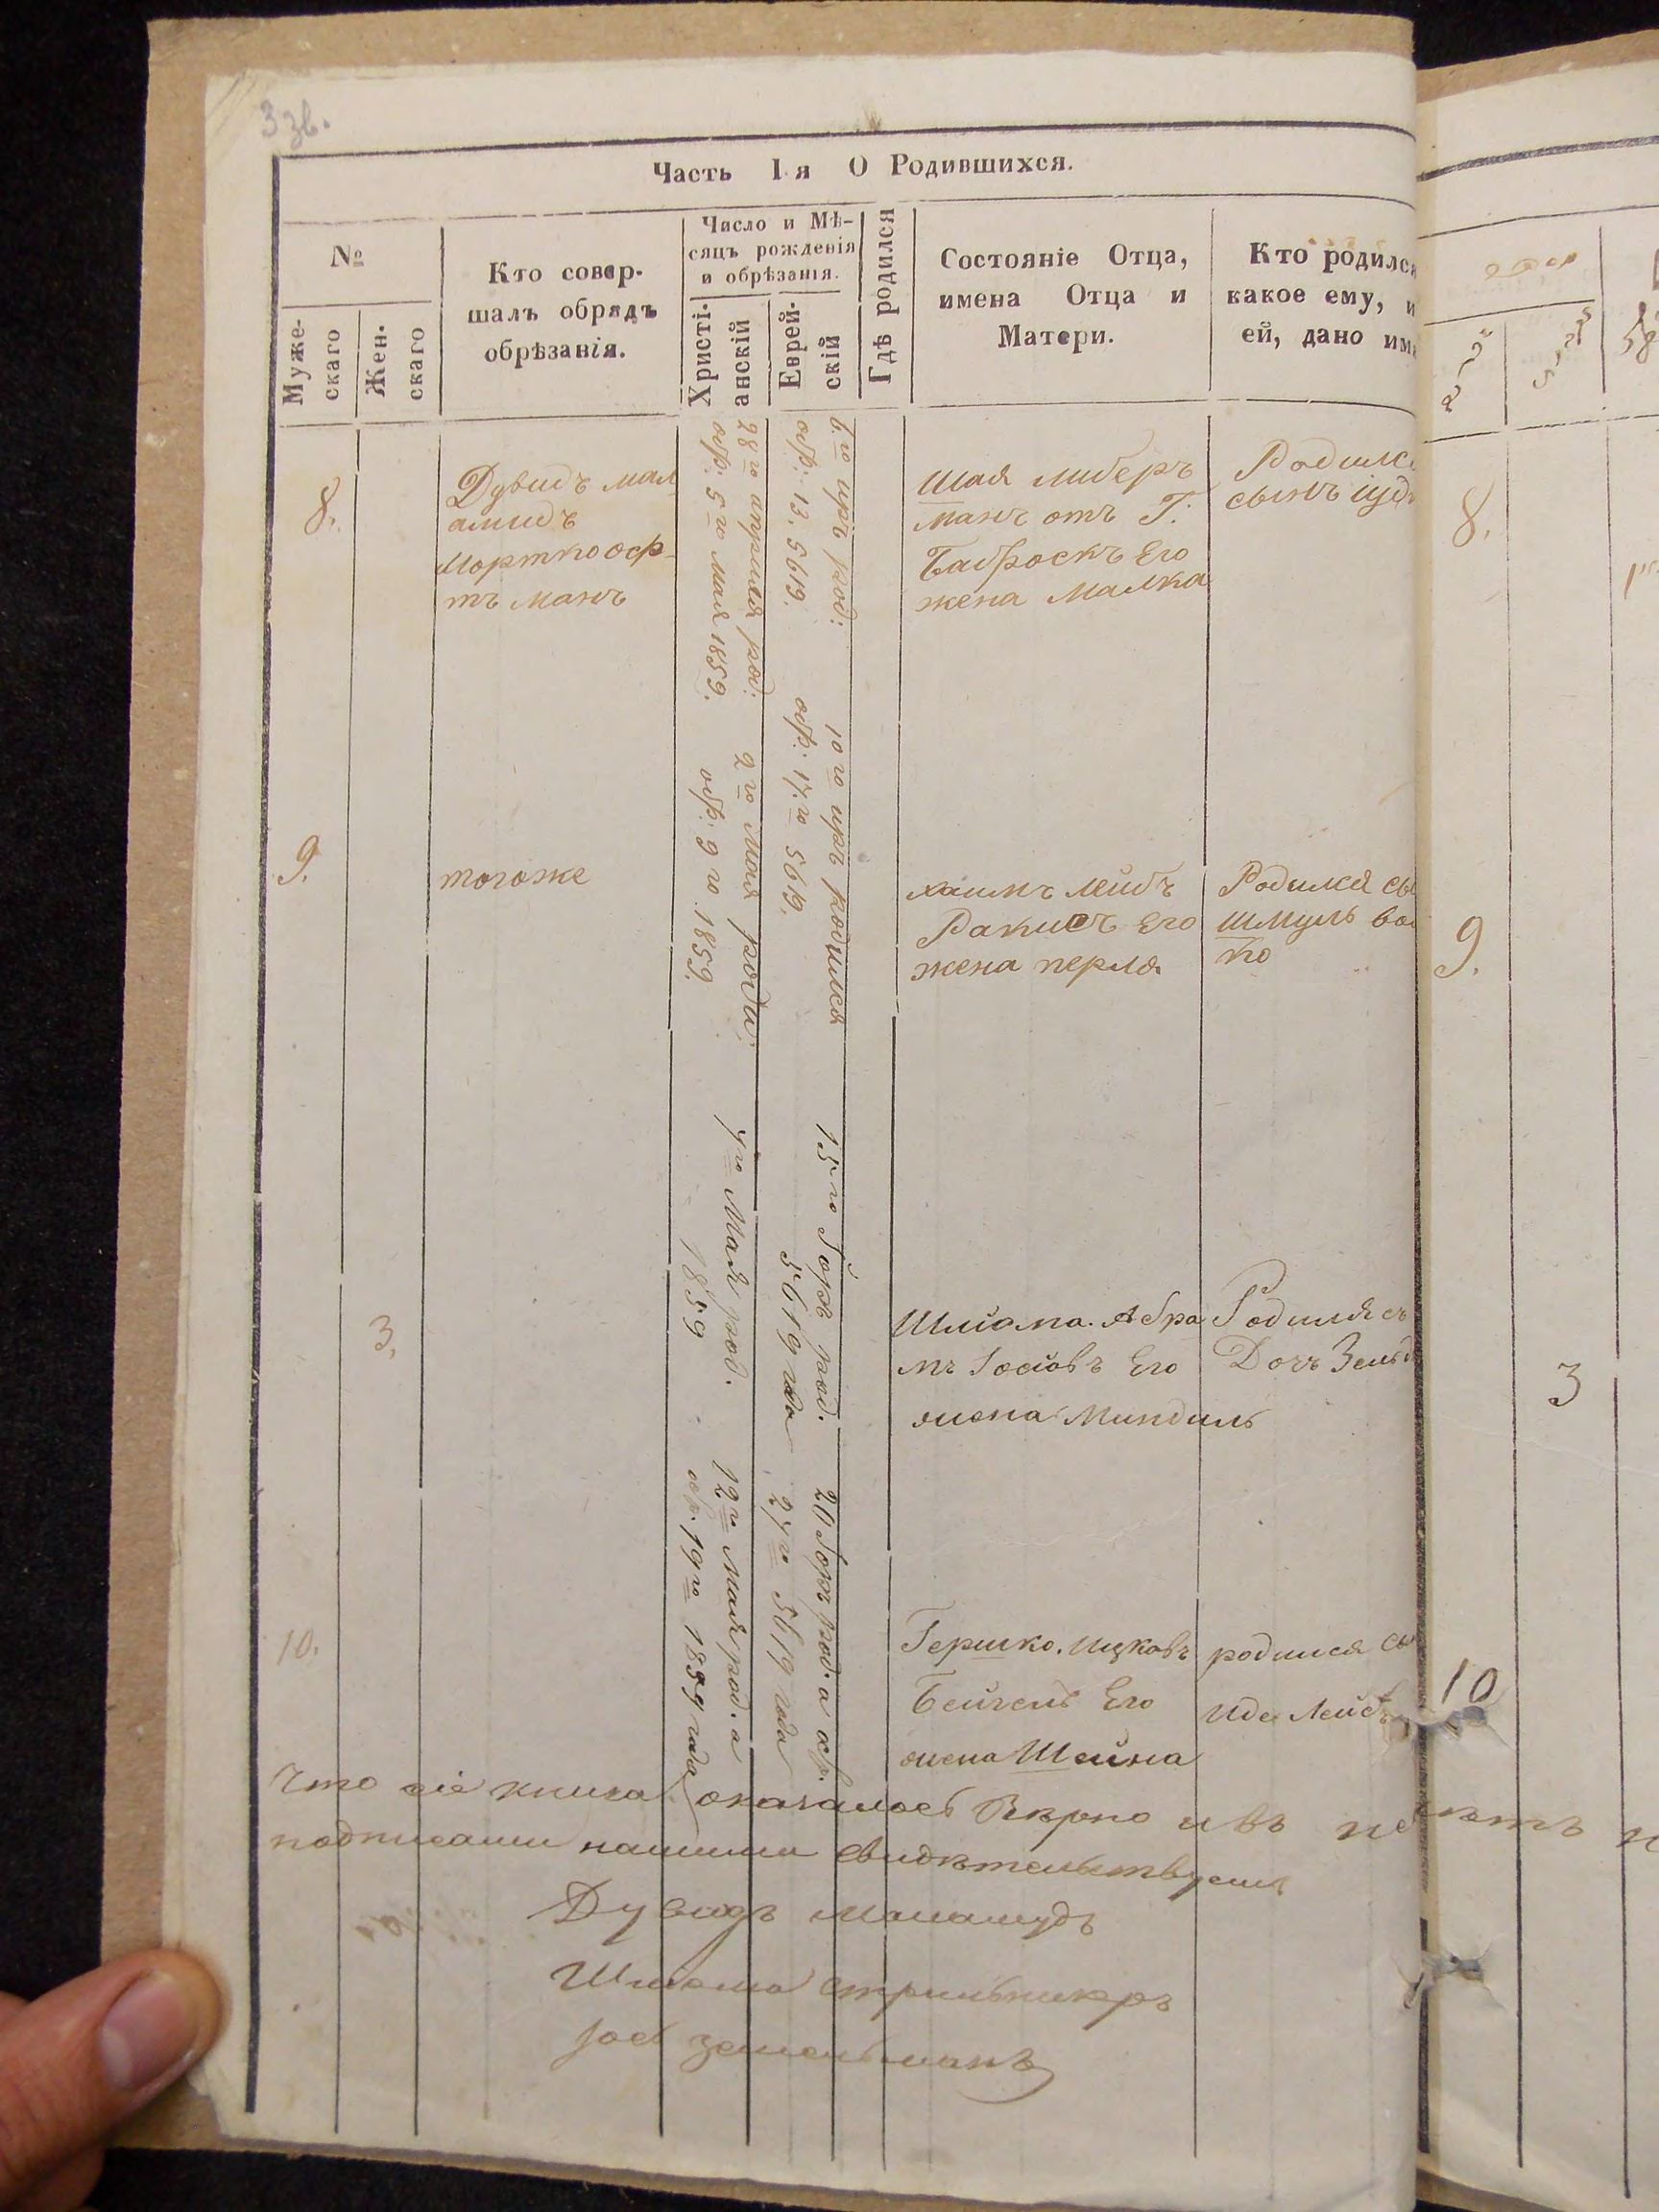 33б.
Часть I.я О Родившихся.
№
Муже-
скаго
Жен-
скаго
Кто совер-
шалъ обрядъ
обрѣзанія.
Число и Мѣ-
сяцъ рожденія
и обрѣзанія.
Христі-
анскій
Еврей-
скій
Гдѣ родился
Состояніе Отца,
имена Отца и
Матери.
Кто родился
какое ему, и
ей, дано им
8.
Дувидъ мал
амидъ
Мортко
манъ
28го апреля род:
обр: 5го мая 1859.
6.го иръ род:
обр: 13. 5619.
Шая либеръ
манъ отъ Г.
Его
жена Малка
Родилс
сынъ
8.
9.
тогоже
2го Мая роди:
обр: 9го 1859.
10го иръ родился
обр: 17.го 5619.
хаимъ лейбъ
Его
жена перля
Родился сы
Шмуль
ко
9.
3.
7го Мая род.
1859
15го род.
5619 года
Шлиома. Абра
мъ Иосiовъ Его
жена Миндиль
Родился съ
Дочь Зельд
3
10.
12го Мая род. а
обр. 19го 1859 года
20 род. а обр.
27го 5619 года
Гершко. Ицковъ
Его
жена Шейна
родился сы
Иде Лейб
10
Что сіе книга оказалось Вѣрно и въ
подписами нашими свидѣтельствуемъ
Дувидъ маламудъ
Шлиома
Іось земеньманъ